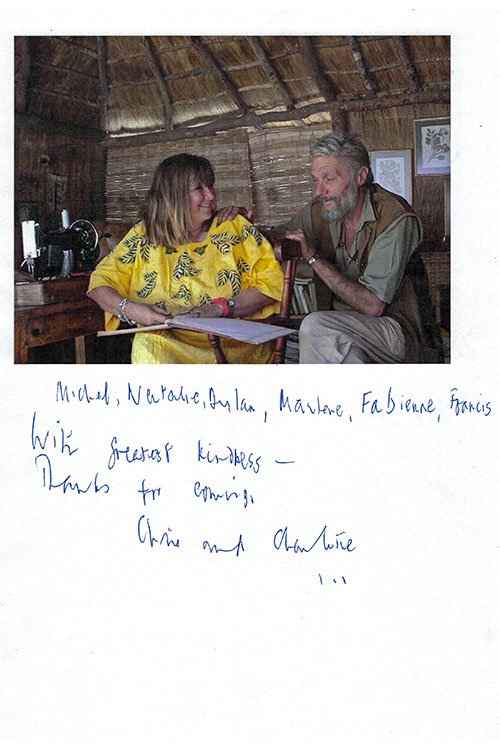 Michel, Natalie, Dylan, Marlene, Fabienne, Francis
With greatest kindness —
Thanks for coming.
Chris and Charlotte
...